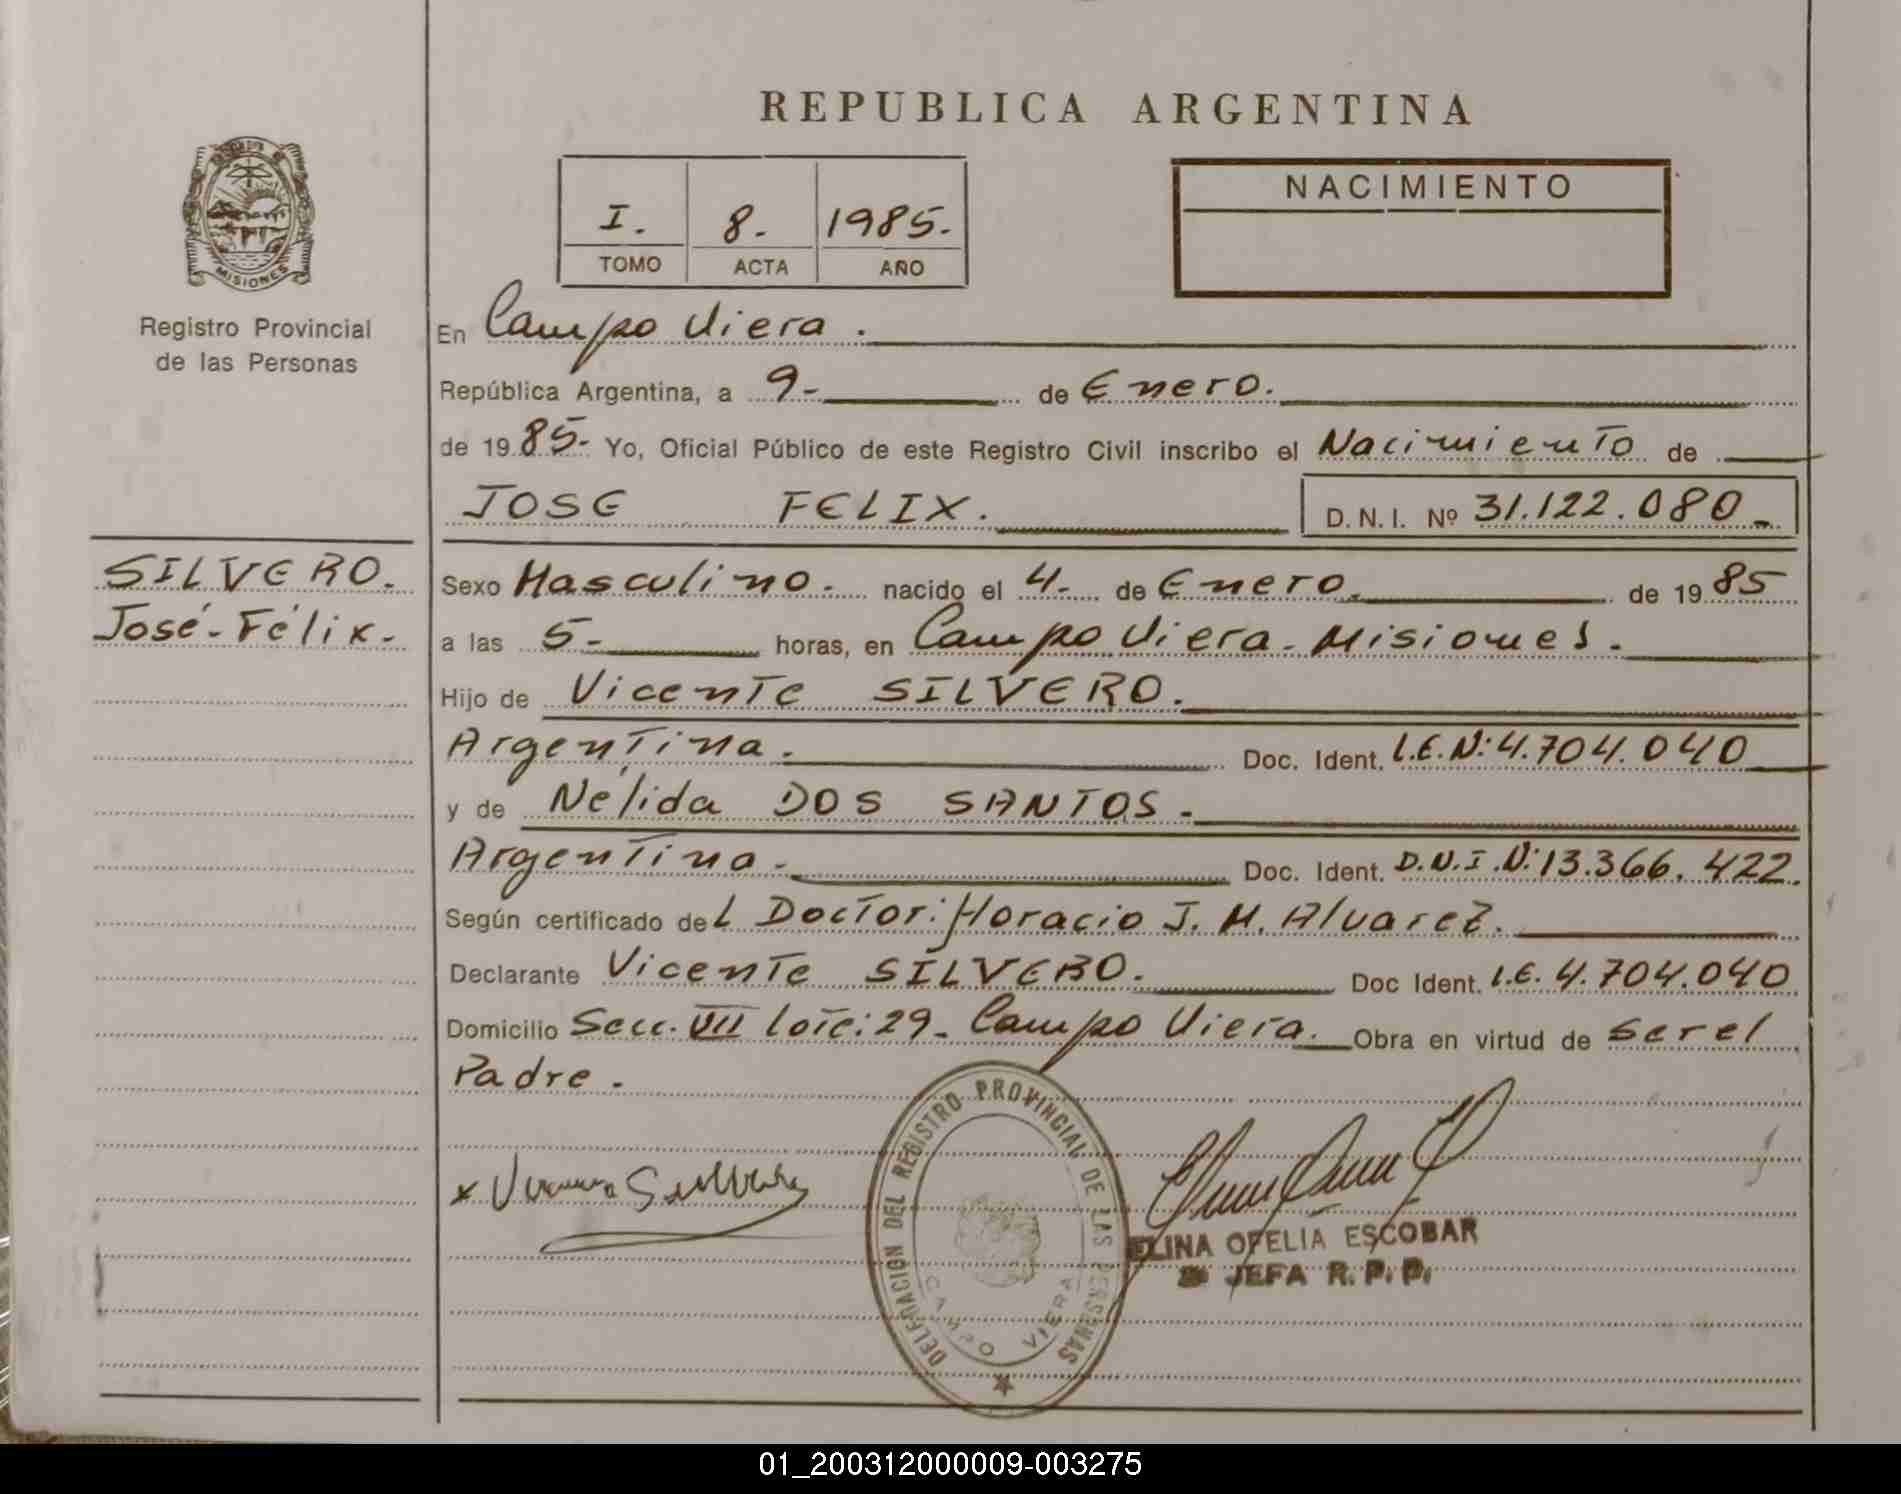 REPUBLICA ARGENTINA
MISIONES
Registro Provincial
de las Personas
I. 8. 1985.
TOMO ACTA AÑO
NACIMIENTO
En Campo Viera.
República Argentina, a 9- de Enero.
de 1985- Yo, Oficial Público de este Registro Civil inscribo el Nacimiento de
JOSE FELIX. D.N.I. Nº 31.122.080-
SILVERO.
José-Félix-
Sexo Masculino. nacido el 4- de Enero. de 1985
a las 5- horas, en Campo Viera-Misiones.
Hijo de Vicente SILVERO.
Argentina. Doc. Ident. L.E.N:4.704.040
y de Nélida DOS SANTOS-
Argentina- Doc. Ident. D.N.I.N:13.366.422.
Según certificado del Doctor: Horacio J. M. Alvarez.
Declarante Vicente SILVERO. Doc Ident. L.E. 4.704.040
Domicilio Secc. VII Lote: 29- Campo Viera. Obra en virtud de ser el
Padre.
DELEGACION DEL REGISTRO PROVINCIAL DE LAS PERSONAS
CAMPO VIERA
ELINA OFELIA ESCOBAR
JEFA R.P.P.
01_200312000009-003275